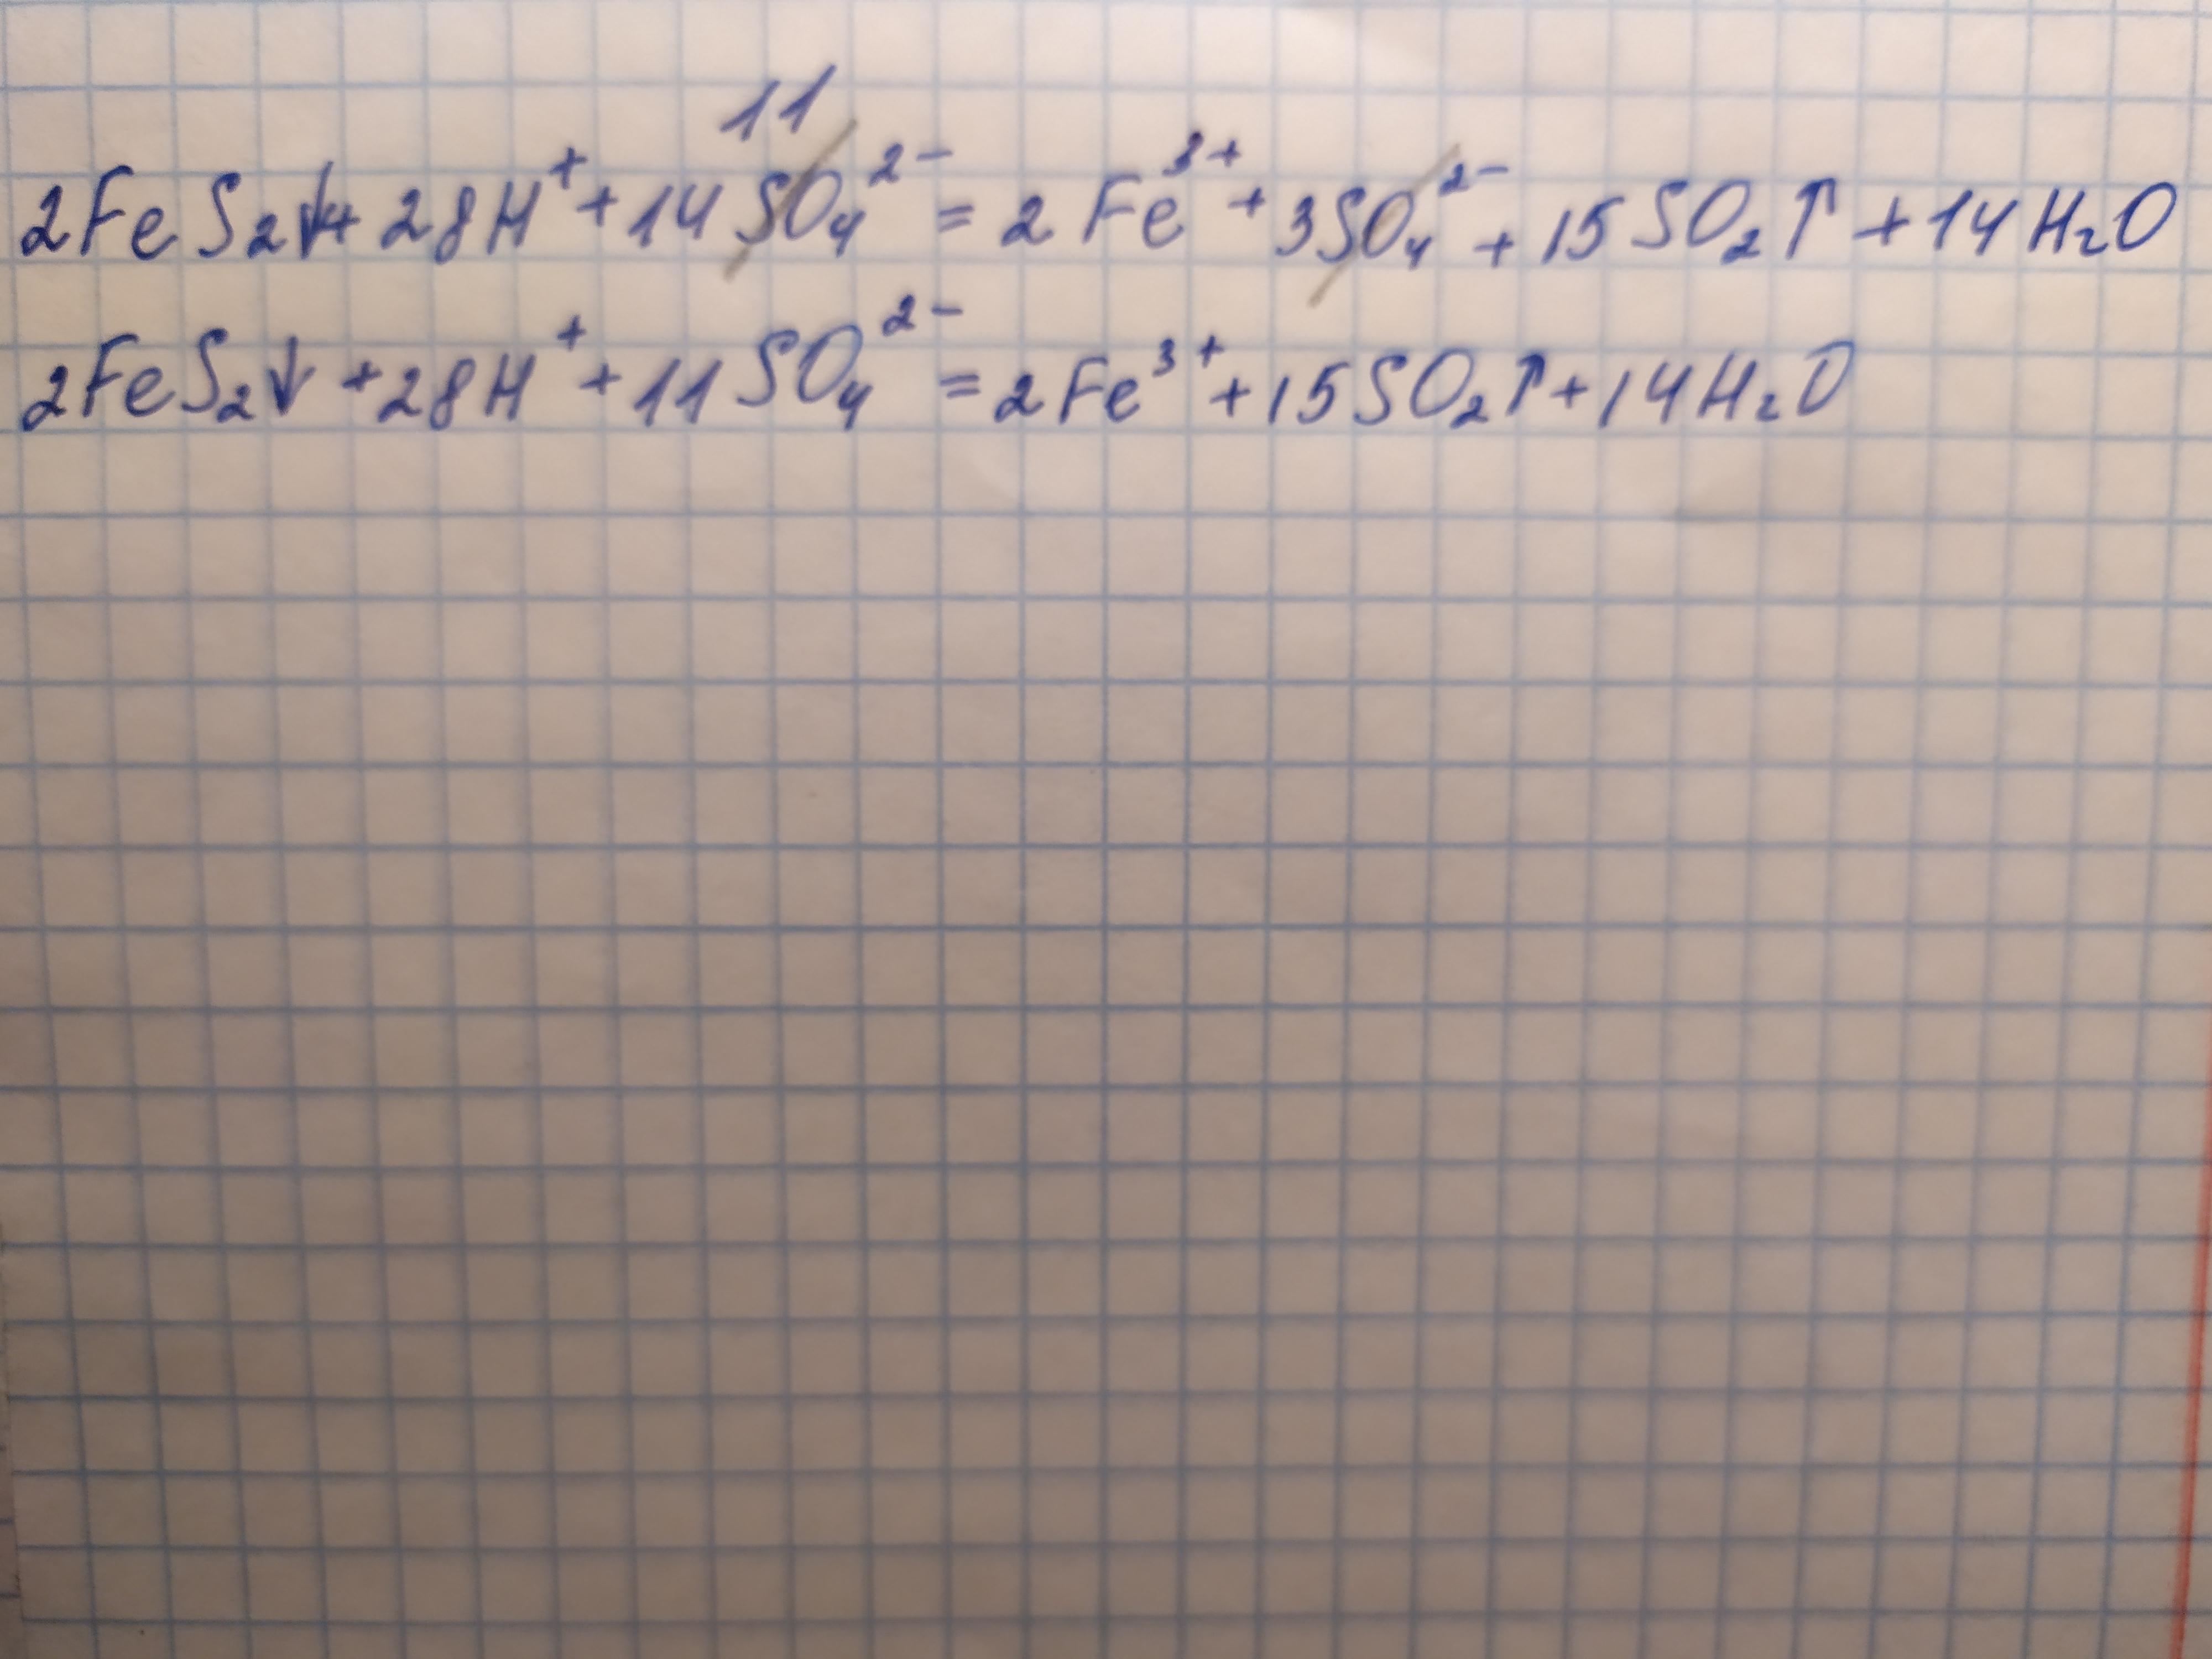 11
2FeS₂↓+ 28H⁺ + 14SO₄²⁻ = 2Fe³⁺ + 3SO₄²⁻ + 15SO₂↑ + 14H₂O
2FeS₂↓ + 28H⁺ + 11SO₄²⁻ = 2Fe³⁺ + 15SO₂↑ + 14H₂O